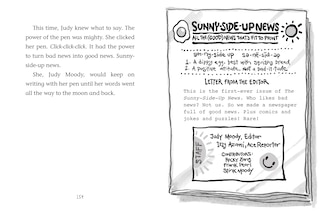 This time, Judy knew what to say. The
power of the pen was mighty. She clicked
her pen. Click-click-click. It had the power
to turn bad news into good news. Sunny-
side-up news.
She, Judy Moody, would keep on
writing with her pen until her words went
all the way to the moon and back.
SUNNY-SIDE-UP NEWS
ALL THE (GOOD) NEWS THAT'S FIT TO PRINT
LETTER FROM THE EDITOR
This is the first-ever issue of The
Sunny-Side-Up News. Who likes bad
news? Not us. So we made a newspaper
full of good news. Plus comics and
jokes and puzzles! Rare!
STAFF
Judy Moody, Editor
Reporter
Contributors:
Rocky Zang
Frank Pearl
Stink Moody